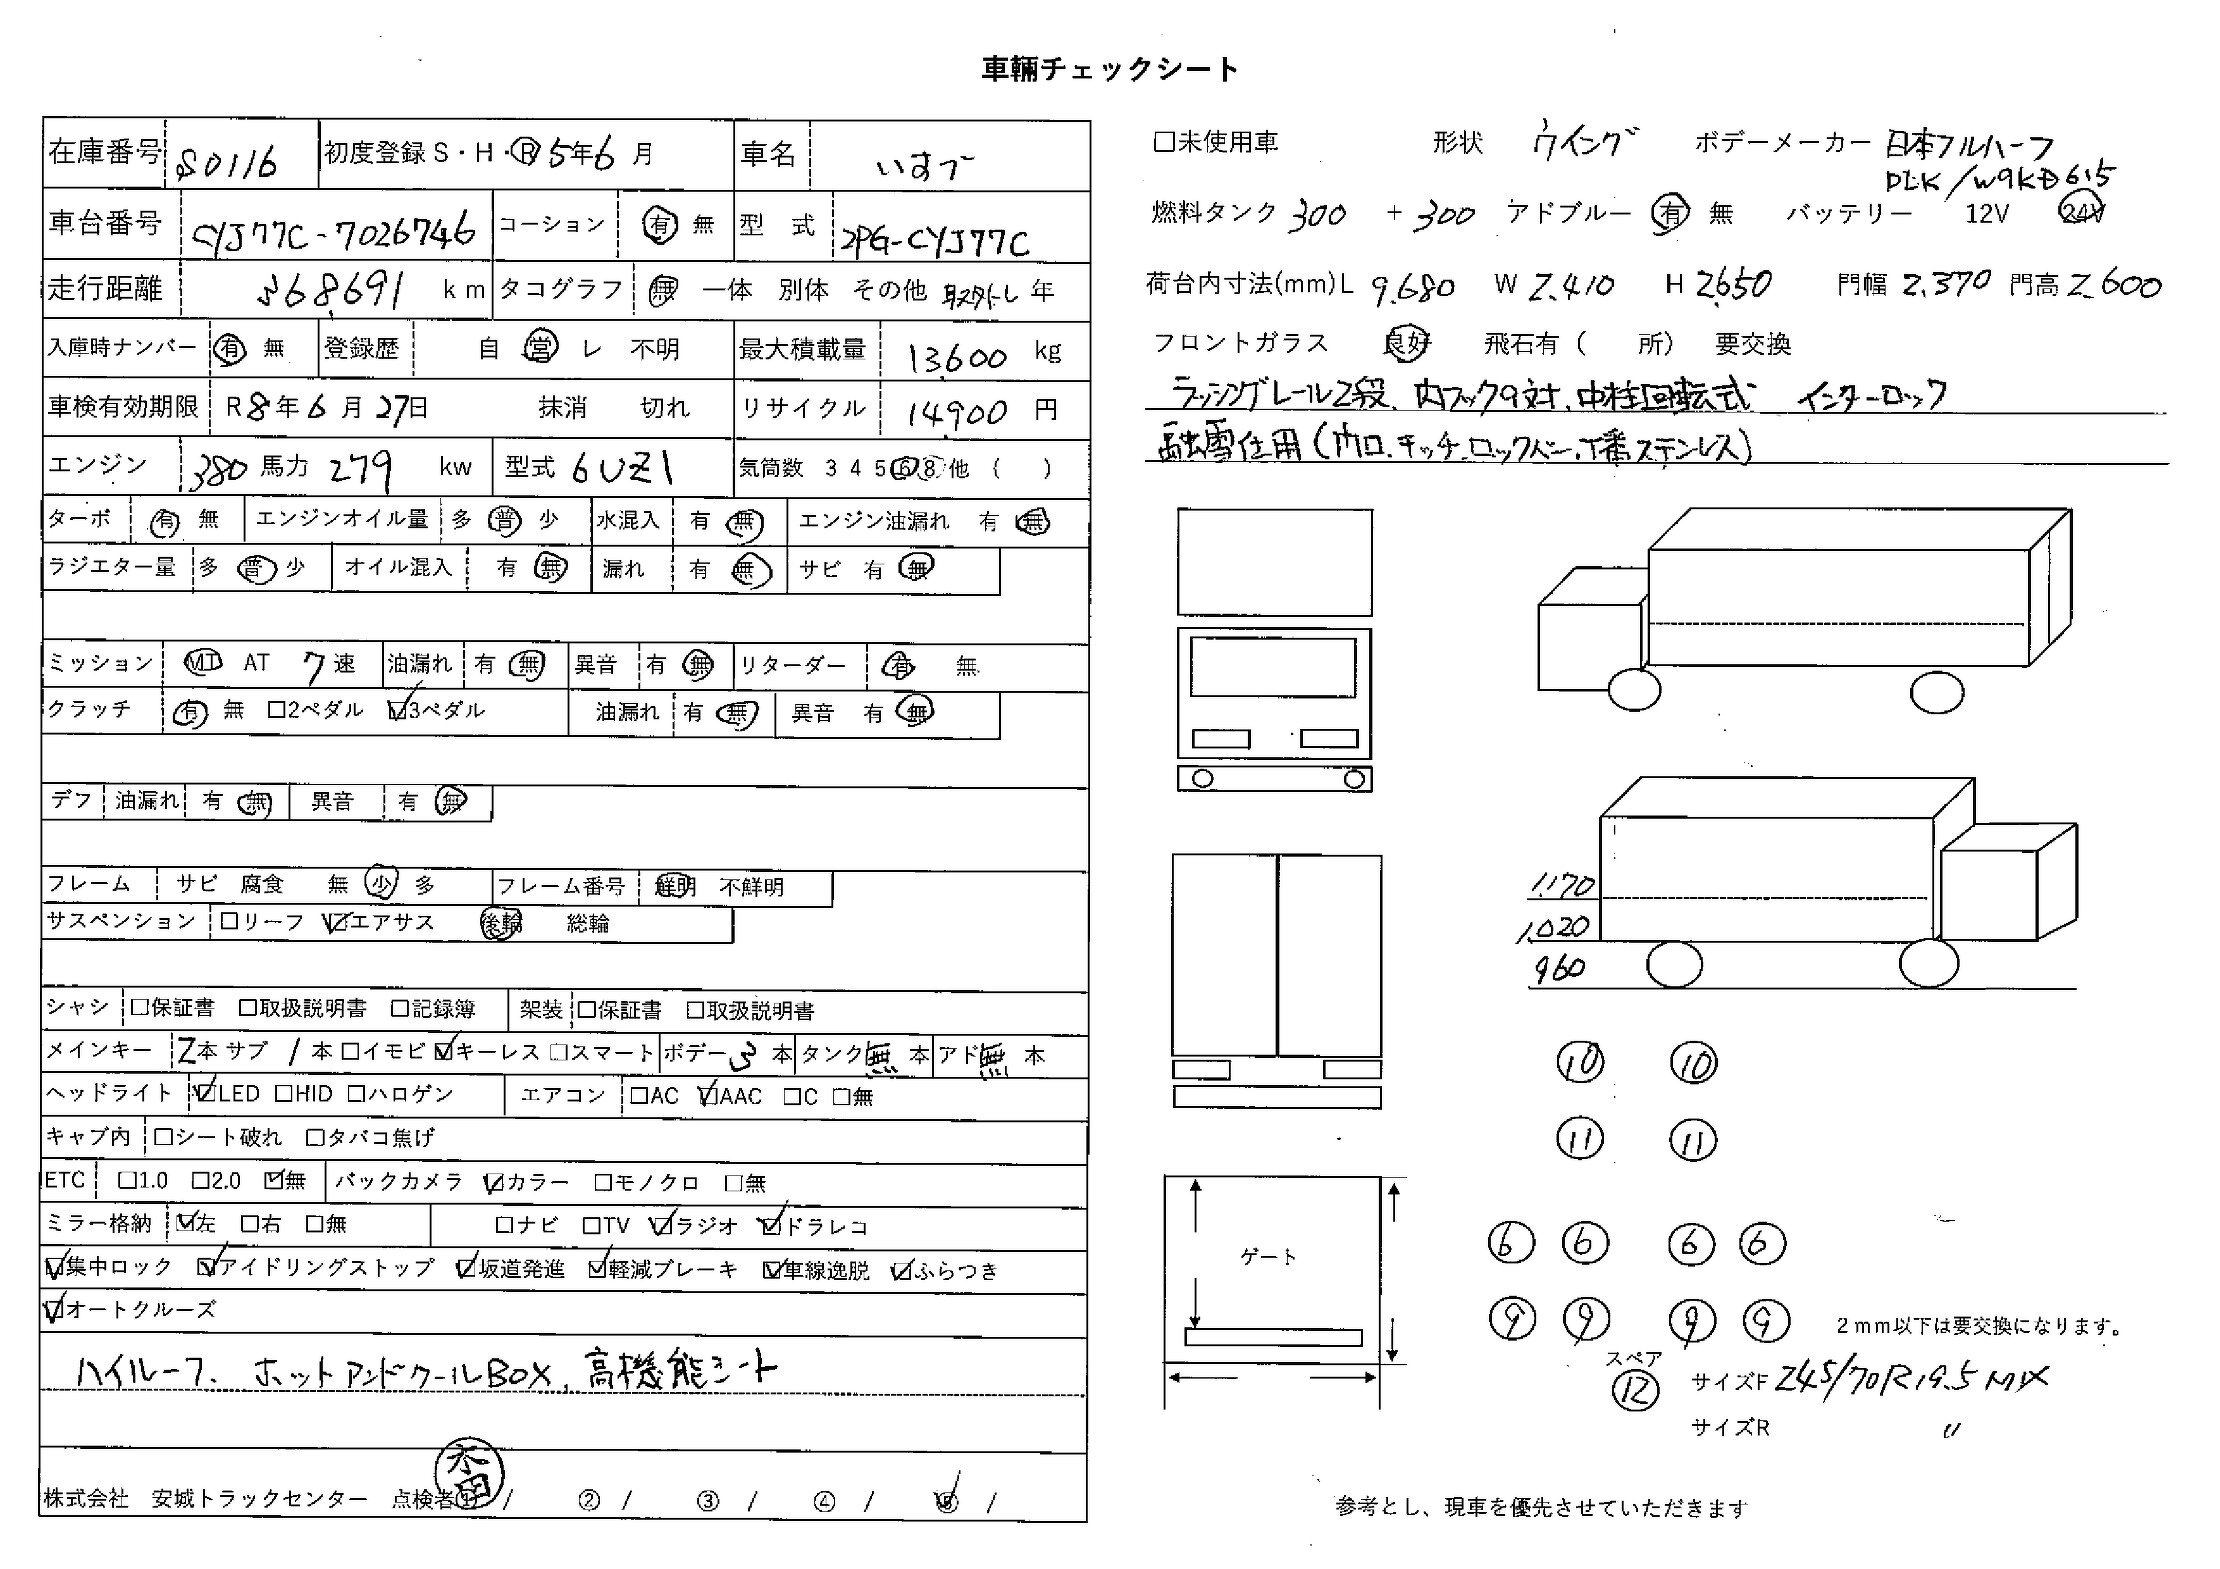 車輛チェックシート
在庫番号 S0116 初度登録 S・H・R 5年6月 車名 いすゞ
車台番号 CYJ77C-7026746 コーション 有 無 型式 2PG-CYJ77C
走行距離 368,691 km タコグラフ 無 一体 別体 その他 年
入庫時ナンバー 有 無 登録歴 自 営 レ 不明 最大積載量 13,600 kg
車検有効期限 R8年6月27日 抹消 切れ リサイクル 14,900 円
エンジン 380馬力 279 kw 型式 6UZ1 気筒数 3 4 5 6 8 他 ( )
ターボ 有 無 エンジンオイル量 多 普 少 水混入 有 無 エンジン油漏れ 有 無
ラジエター量 多 普 少 オイル混入 有 無 漏れ 有 無 サビ 有 無
ミッション MT AT 7速 油漏れ 有 無 異音 有 無 リターダー 有 無
クラッチ 有 無 □2ペダル ☑3ペダル 油漏れ 有 無 異音 有 無
デフ 油漏れ 有 無 異音 有 無
フレーム サビ 腐食 無 少 多 フレーム番号 鮮明 不鮮明
サスペンション □リーフ ☑エアサス 後輪 総輪
シャシ □保証書 □取扱説明書 □記録簿 架装 □保証書 □取扱説明書
メインキー 2本 サブ 1本 □イモビ ☑キーレス □スマート ボデー 3本 タンク 無 本 アド 無 本
ヘッドライト ☑LED □HID □ハロゲン エアコン □AC ☑AAC □C □無
キャブ内 □シート破れ □タバコ焦げ
ETC □1.0 □2.0 ☑無 バックカメラ ☑カラー □モノクロ □無
ミラー格納 ☑左 □右 □無 □ナビ □TV ☑ラジオ ☑ドラレコ
☑集中ロック ☑アイドリングストップ ☑坂道発進 ☑軽減ブレーキ ☑車線逸脱 ☑ふらつき
☑オートクルーズ
ハイルーフ、ホットアンドクールBOX、高機能シート
株式会社 安城トラックセンター 点検者① / ② / ③ / ④ / ⑤ /
□未使用車 形状 ウイング ボデーメーカー 日本フルハーフ
燃料タンク 300 + 300 アドブルー 有 無 バッテリー 12V 24V
荷台内寸法(mm) L 9,680 W 2,410 H 2,650 門幅 2,370 門高 2,600
フロントガラス 良好 飛石有 ( 所) 要交換
ラッシングレール2段、内フック9対、中柱回転式 インターロック
融雪仕用(門口、キッチ、ロックバー、丁番ステンレス)
1,170
1,020
960
⑩ ⑩
⑪ ⑪
ゲート
⑥ ⑥ ⑥ ⑥
⑨ ⑨ ⑨ ⑨
2mm以下は要交換になります。
スペア
⑫ サイズF 245/70R19.5 MIX
サイズR 〃
参考とし、現車を優先させていただきます